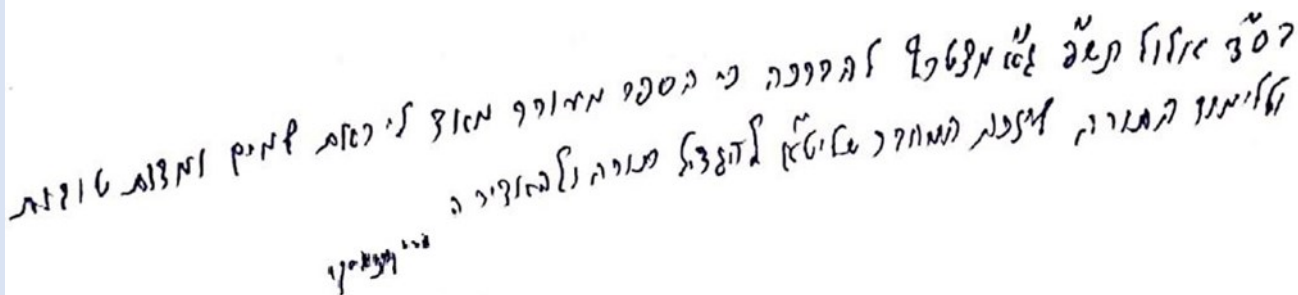 בס"ד אלול תש"פ גם אני מצטרף להברכה כי הספר מעורר מאוד ליראת שמים ומדות טובות
וללימוד התורה שיזכה המחבר שליט"א להגדיל תורה ולהאדירה